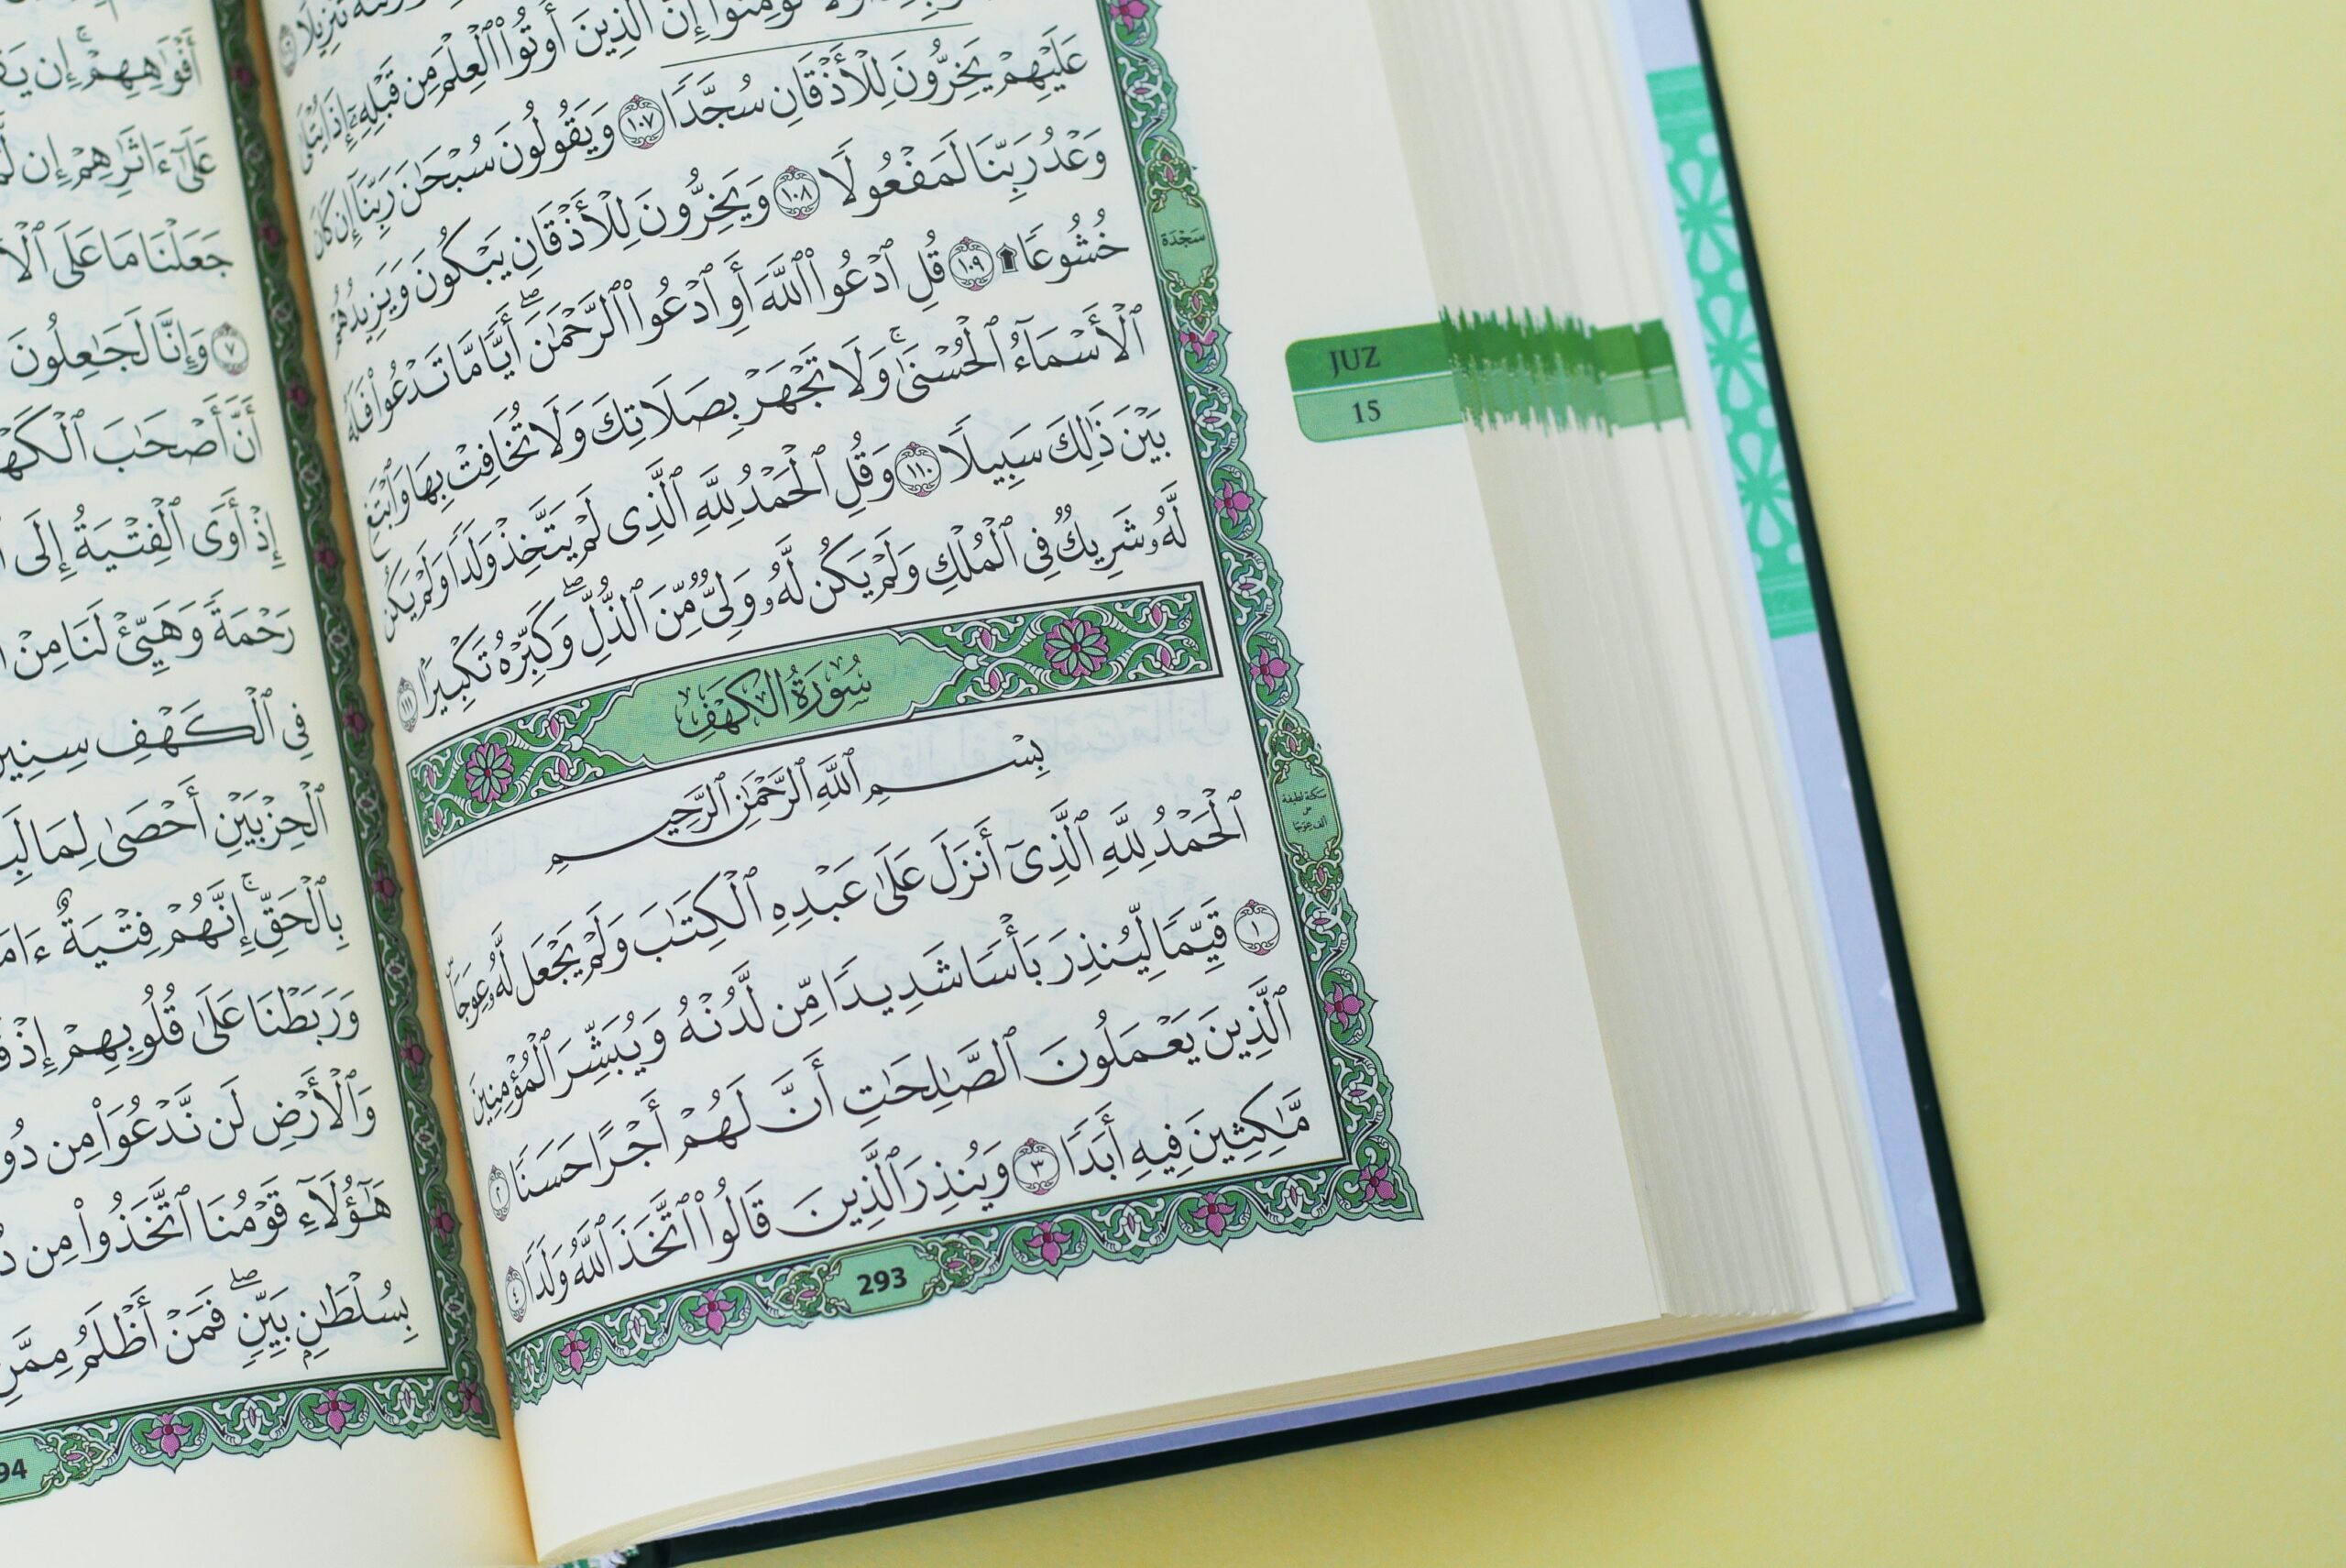 تَنزِيلًا
تُؤْمِنُوٓاْ إِنَّ ٱلَّذِينَ أُوتُواْ ٱلْعِلْمَ مِن قَبْلِهِۦٓ إِذَا يُتْلَىٰ
عَلَيْهِمْ يَخِرُّونَ لِلْأَذْقَانِ سُجَّدًا ١٠٧ وَيَقُولُونَ سُبْحَٰنَ رَبِّنَآ إِن كَانَ
وَعْدُ رَبِّنَا لَمَفْعُولًا ١٠٨ وَيَخِرُّونَ لِلْأَذْقَانِ يَبْكُونَ وَيَزِيدُهُمْ
خُشُوعًا ۩ ١٠٩ قُلِ ٱدْعُواْ ٱللَّهَ أَوِ ٱدْعُواْ ٱلرَّحْمَٰنَۖ أَيًّا مَّا تَدْعُواْ فَلَهُ
ٱلْأَسْمَآءُ ٱلْحُسْنَىٰۚ وَلَا تَجْهَرْ بِصَلَاتِكَ وَلَا تُخَافِتْ بِهَا وَٱبْتَغِ
بَيْنَ ذَٰلِكَ سَبِيلًا ١١٠ وَقُلِ ٱلْحَمْدُ لِلَّهِ ٱلَّذِى لَمْ يَتَّخِذْ وَلَدًا وَلَمْ يَكُن
لَّهُۥ شَرِيكٌ فِى ٱلْمُلْكِ وَلَمْ يَكُن لَّهُۥ وَلِىٌّ مِّنَ ٱلذُّلِّۖ وَكَبِّرْهُ تَكْبِيرًۢا ١١١
سُورَةُ الكَهْفِ
بِسْمِ ٱللَّهِ ٱلرَّحْمَٰنِ ٱلرَّحِيمِ
ٱلْحَمْدُ لِلَّهِ ٱلَّذِىٓ أَنزَلَ عَلَىٰ عَبْدِهِ ٱلْكِتَٰبَ وَلَمْ يَجْعَل لَّهُۥ عِوَجَاۜ
١ قَيِّمًا لِّيُنذِرَ بَأْسًا شَدِيدًا مِّن لَّدُنْهُ وَيُبَشِّرَ ٱلْمُؤْمِنِينَ
ٱلَّذِينَ يَعْمَلُونَ ٱلصَّٰلِحَٰتِ أَنَّ لَهُمْ أَجْرًا حَسَنًا ٢
مَّٰكِثِينَ فِيهِ أَبَدًا ٣ وَيُنذِرَ ٱلَّذِينَ قَالُواْ ٱتَّخَذَ ٱللَّهُ وَلَدًا ٤
293
سَجْدَة
سكتة لطيفة
على
ألف عوجا
JUZ
15
أَفْوَٰهِهِمْۚ إِن
عَلَىٰٓ ءَاثَٰرِهِمْ إِن
جَعَلْنَا مَا عَلَى
٧ وَإِنَّا لَجَٰعِلُونَ
أَنَّ أَصْحَٰبَ
إِذْ أَوَى ٱلْفِتْيَةُ إِلَى
رَحْمَةً وَهَيِّئْ لَنَا مِنْ
فِى ٱلْكَهْفِ
ٱلْحِزْبَيْنِ أَحْصَىٰ
بِٱلْحَقِّۚ إِنَّهُمْ فِتْيَةٌ
وَرَبَطْنَا عَلَىٰ قُلُوبِهِمْ إِذْ
وَٱلْأَرْضِ لَن نَّدْعُوَاْ مِن
هَٰٓؤُلَآءِ قَوْمُنَا ٱتَّخَذُواْ مِن
بِسُلْطَٰنٍۭ بَيِّنٍۖ فَمَنْ أَظْلَمُ مِمَّنِ
94